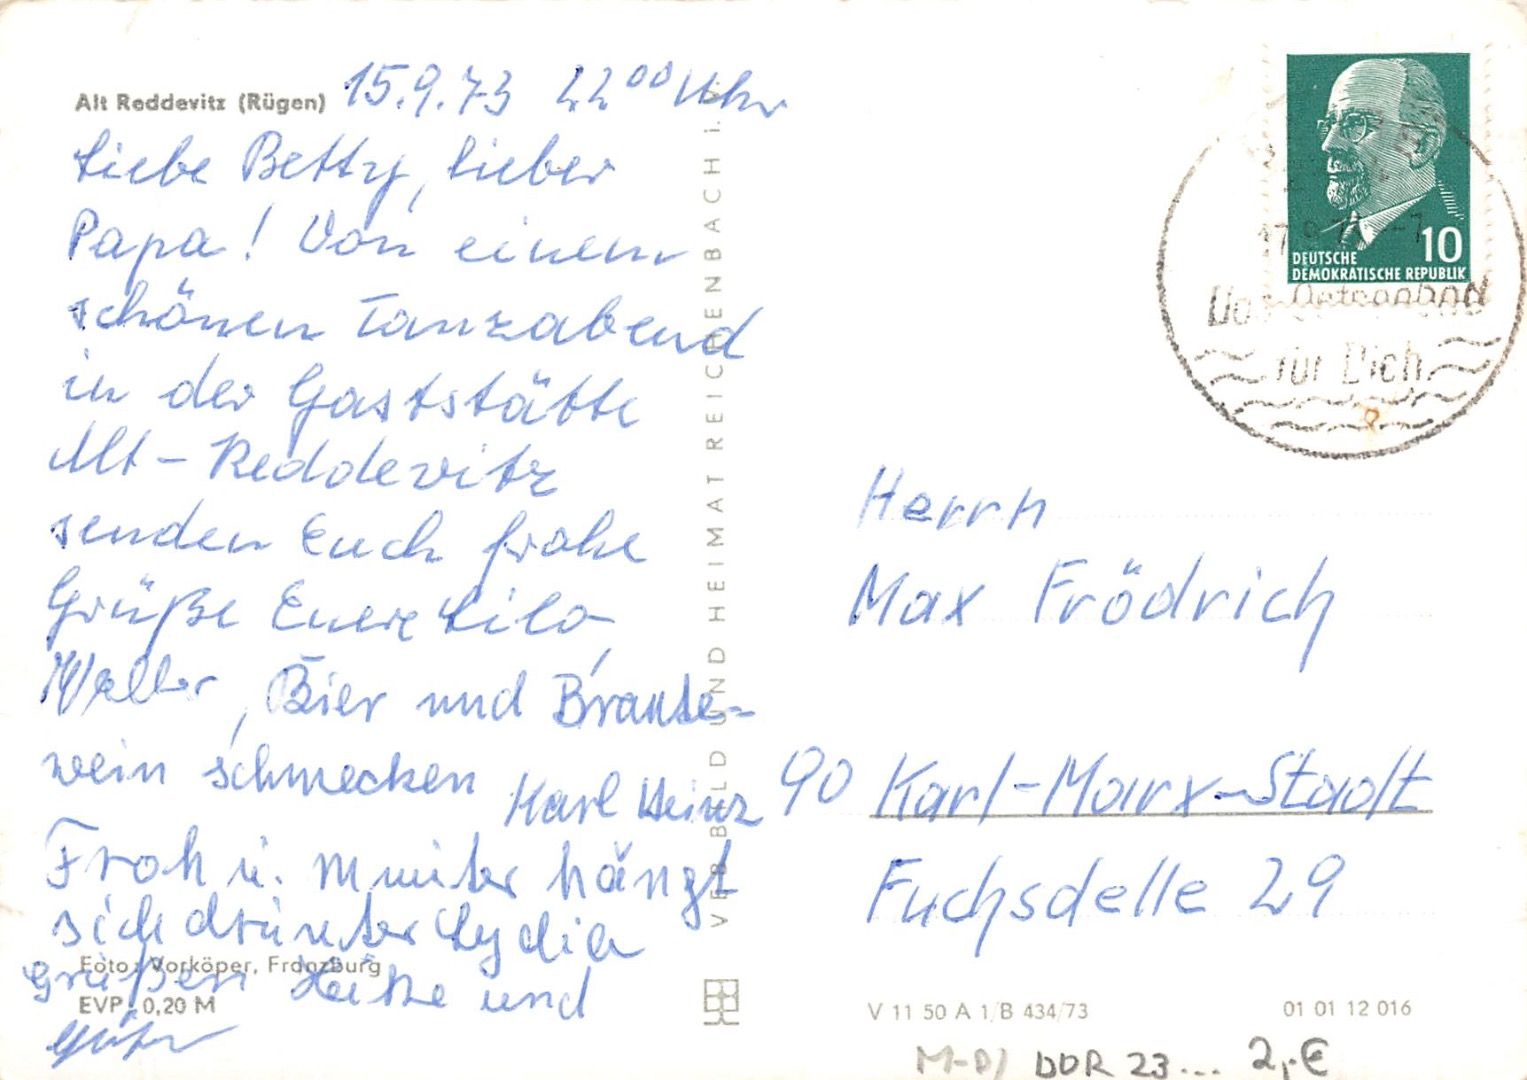 Alt Reddevitz (Rügen) 15.9.73 22 00 Uhr
Liebe Betty, lieber
Papa! Von einem
schönen Tanzabend
in der Gaststätte
Alt-Reddevitz
senden Euch frohe
Grüße Eure Lilo,
Walter, Bier und Brannte-
wein schmecken Karl Heinz
Froh u. Munter hängt
sich drunter Lydia
Grüßen Heike und
Foto: Vorköper, Franzburg
EVP 0,20 M
VEB BILD UND HEIMAT REICHENBACH i.
10
DEUTSCHE
DEMOKRATISCHE REPUBLIK
17.9.7
Das Ostseebad
für Dich
Herrn
Max Frödrich
90 Karl-Marx-Stadt
Fuchsdelle 29
V 11 50 A 1/B 434/73
01 01 12 016
DDR 23... 2,-€